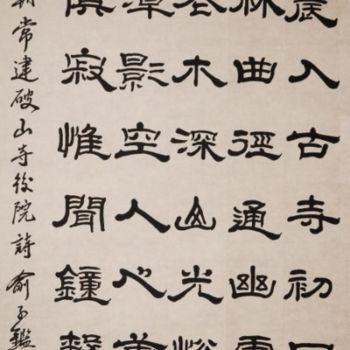 晨入古寺初日
林曲徑通幽處
花木深山光悅
潭影空人心萬
俱寂惟聞鐘磬
常建破山寺後院詩 俞子鑑